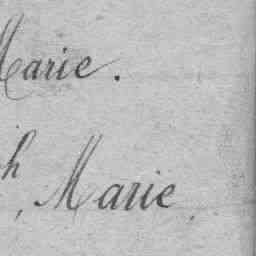 Marie.
h, Marie